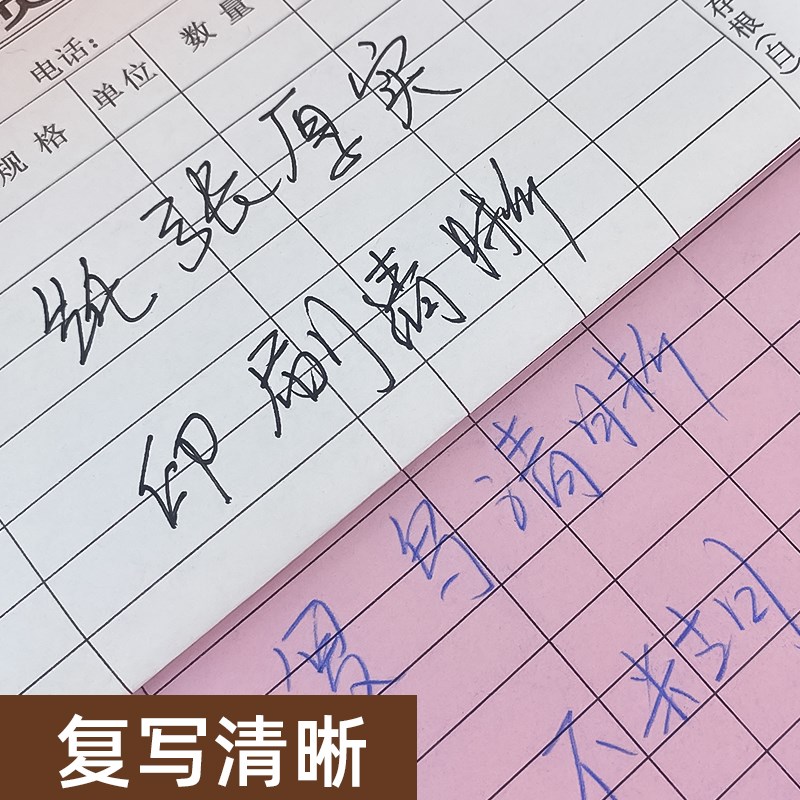 电话:
数量
存根(白)
规格 单位
纸张厚实
印刷清晰
复写清晰
不糊
复写清晰